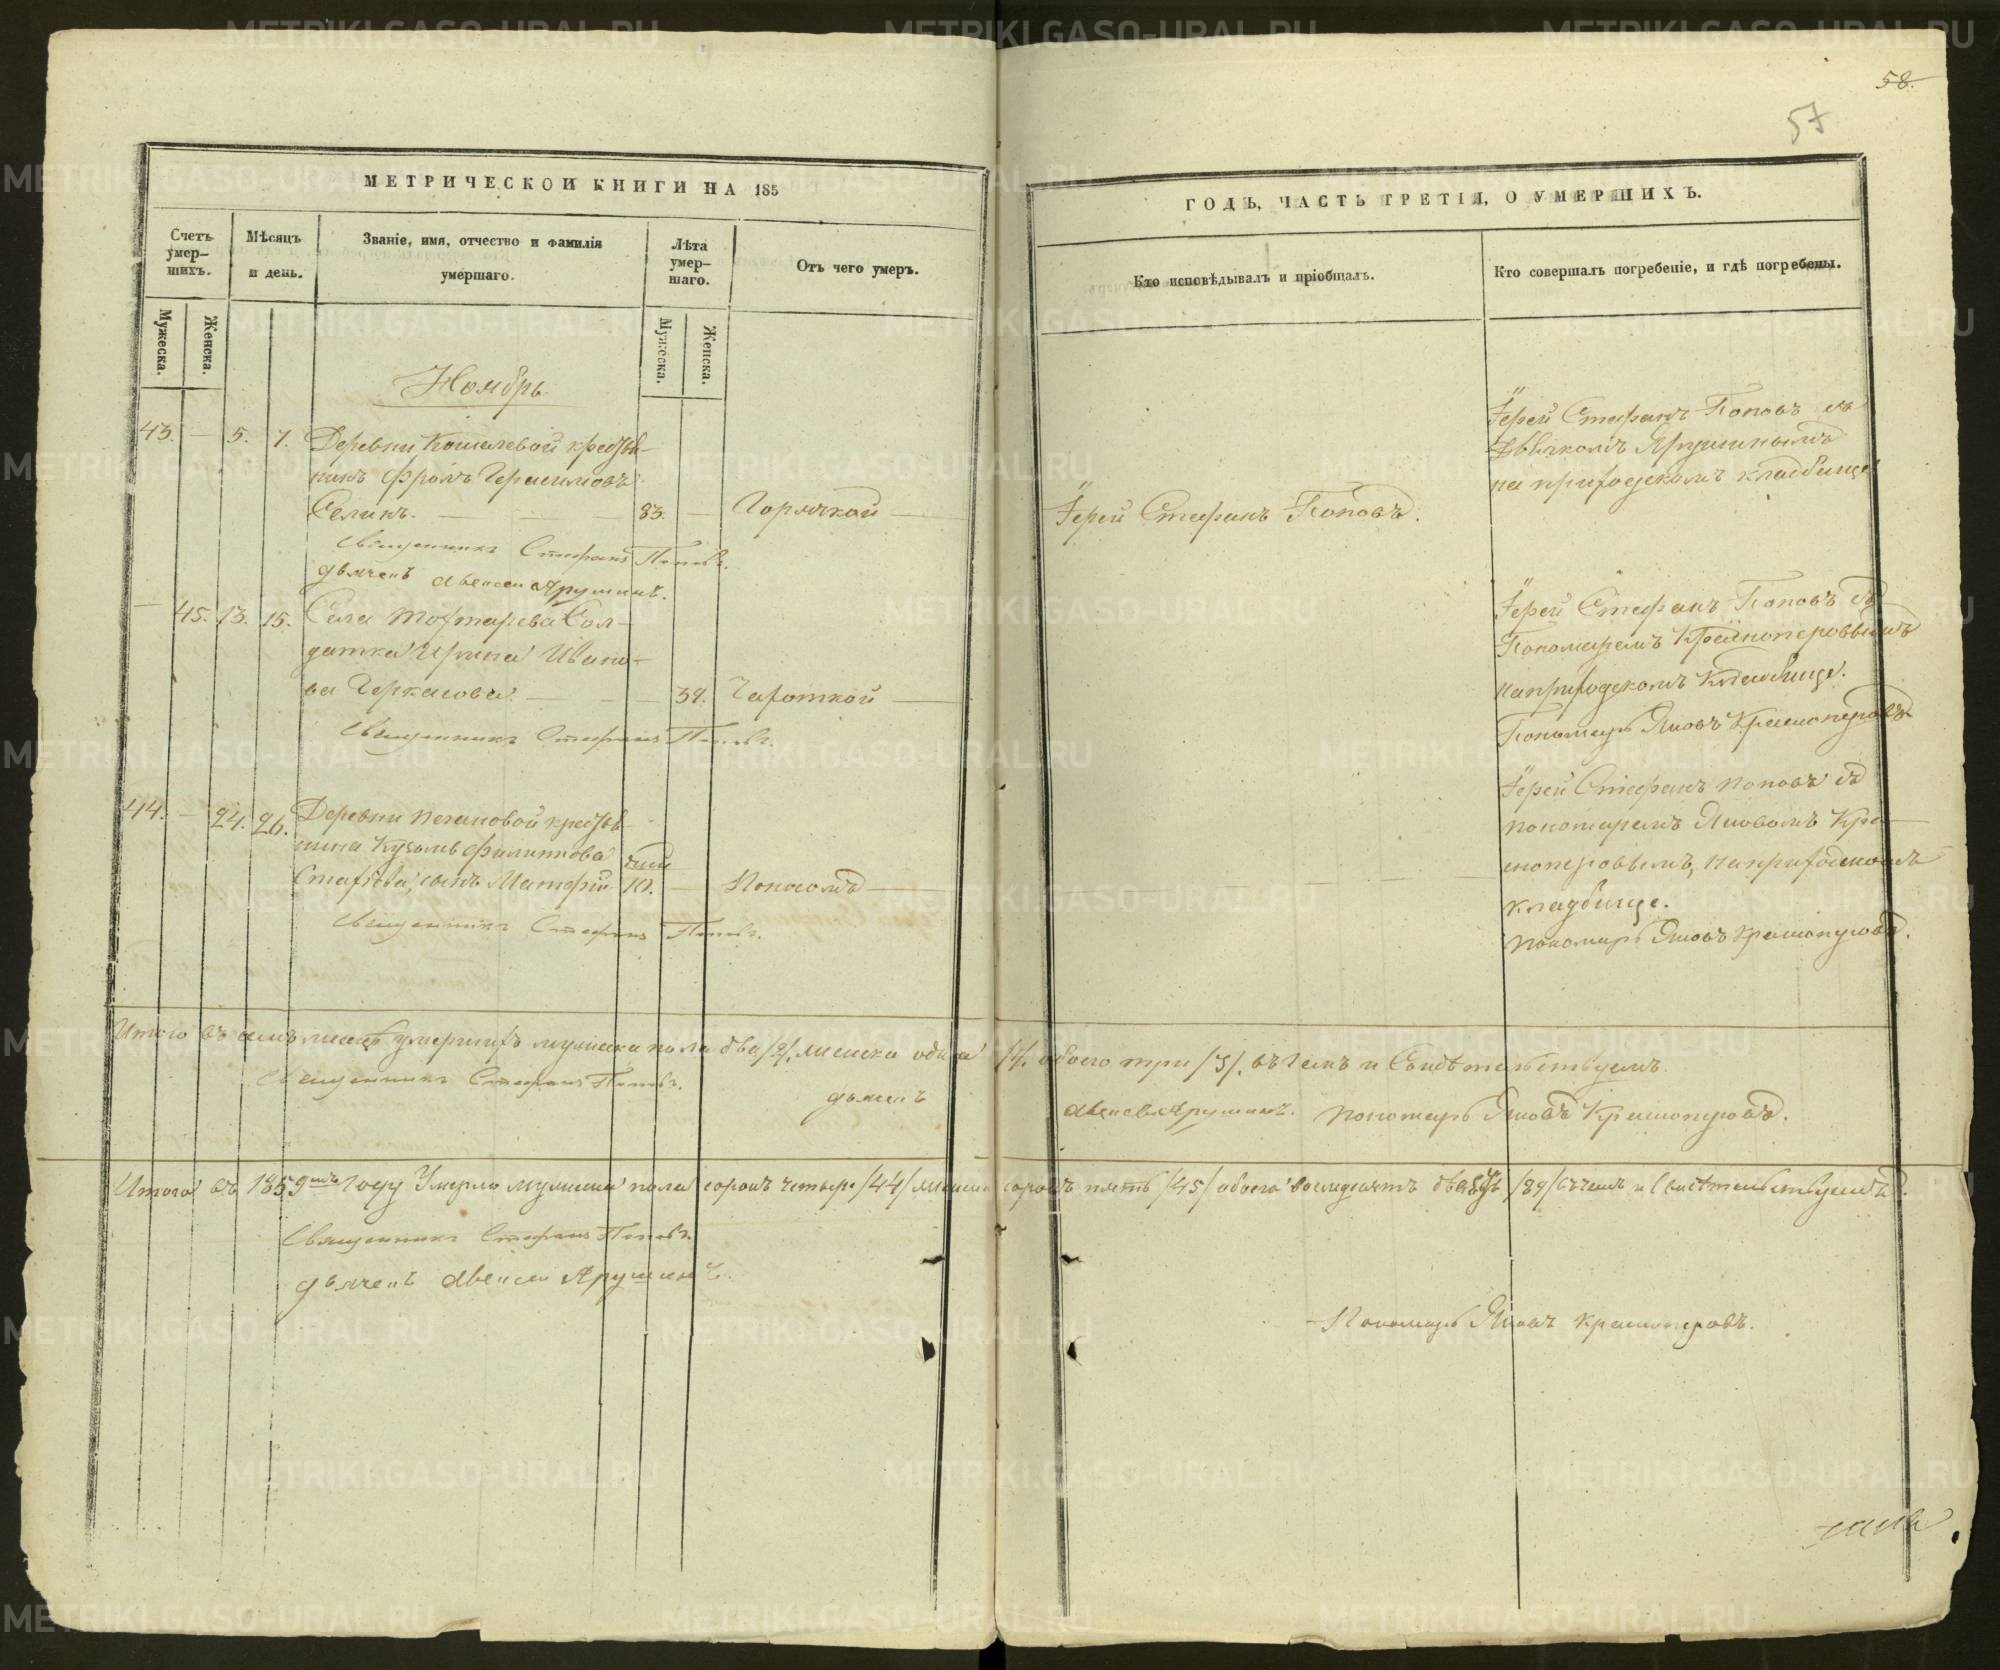 58.
57
МЕТРИЧЕСКОЙ КНИГИ НА 185
ГОДЪ, ЧАСТЬ ТРЕТІЯ, О УМЕРШИХЪ.
Счетъ умер-шихъ.
Мѣсяцъ и день.
Званіе, имя, отчество и фамилія умершаго.
Лѣта умер-шаго.
Отъ чего умеръ.
Кто исповѣдывалъ и пріобщалъ.
Кто совершалъ погребеніе, и гдѣ погребены.
Мужеска.
Женска.
Мужеска.
Женска.
Ноябрь
43. — 5. 7. Деревни Кошелевой крестья-
нинъ Фролъ Герасимовъ
Селинъ. — 83. — Горячкой —
Священникъ Стефанъ Поповъ.
дьячекъ Алексей Ярушинъ.
Іерей Стефанъ Поповъ.
Іерей Стефанъ Поповъ съ
дьячкомъ Ярушинымъ
на приходскомъ кладбище
— 45. 13. 15. Села Тохтарева Сол-
датка Ирина Ивано-
ва Черкасова. — — 39. Чахоткой —
Священникъ Стефанъ Поповъ.
Іерей Стефанъ Поповъ съ
Пономаремъ Красноперовымъ
на приходскомъ Кладбище.
Пономарь Яковъ Красноперовъ
44. — 24. 26. Деревни
Кузьмы Филиппова
сынъ
дней
10. — Поносомъ —
Священникъ Стефанъ Поповъ.
Іерей Стефанъ Поповъ съ
пономаремъ Яковомъ Кра-
сноперовымъ, на приходскомъ
кладбище.
Пономарь Яковъ Красноперовъ.
Итого въ семъ месяце умершихъ мужеска пола два /2/, женска одна /1/. обоего три /3/. въ чемъ и Свидѣтельствуемъ.
Священникъ Стефанъ Поповъ.
дьячекъ Алексей Ярушинъ. Пономарь Яковъ Красноперовъ.
Итого въ 1859мъ году Умерло мужеска пола сорокъ четыре /44/ женска сорокъ пять /45/ обоего восемдесятъ девять /89/ въ чемъ и Свидѣтельствуемъ.
Священникъ Стефанъ Поповъ.
дьячекъ Алексей Ярушинъ.
Пономарь Яковъ Красноперовъ.
METRIKI.GASO-URAL.RU